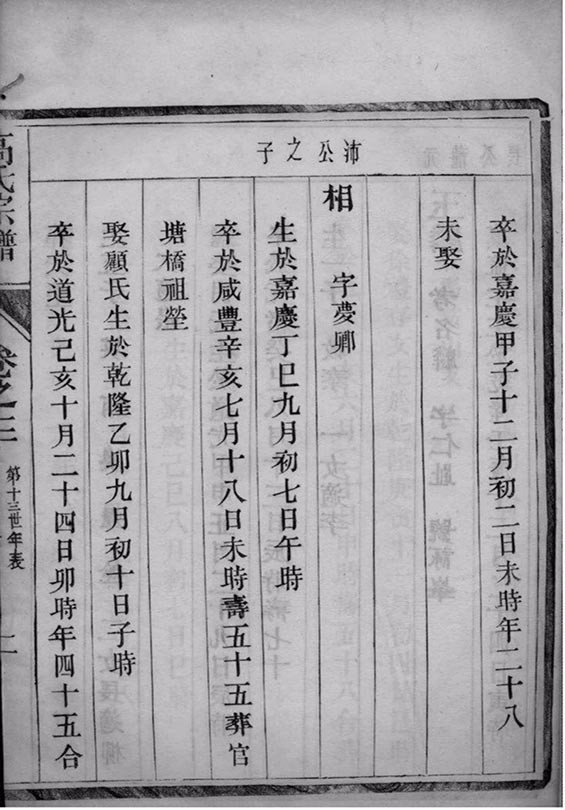 卒於嘉慶甲子十二月初二日未時年二十八
未娶
沛公之子
相　字夢卿
生於嘉慶丁巳九月初七日午時
卒於咸豐辛亥七月十八日未時壽五十五葬官
塘橋祖塋
娶顧氏生於乾隆乙卯九月初十日子時
卒於道光己亥十月二十四日卯時年四十五合
高氏宗譜
卷之
第十三世年表